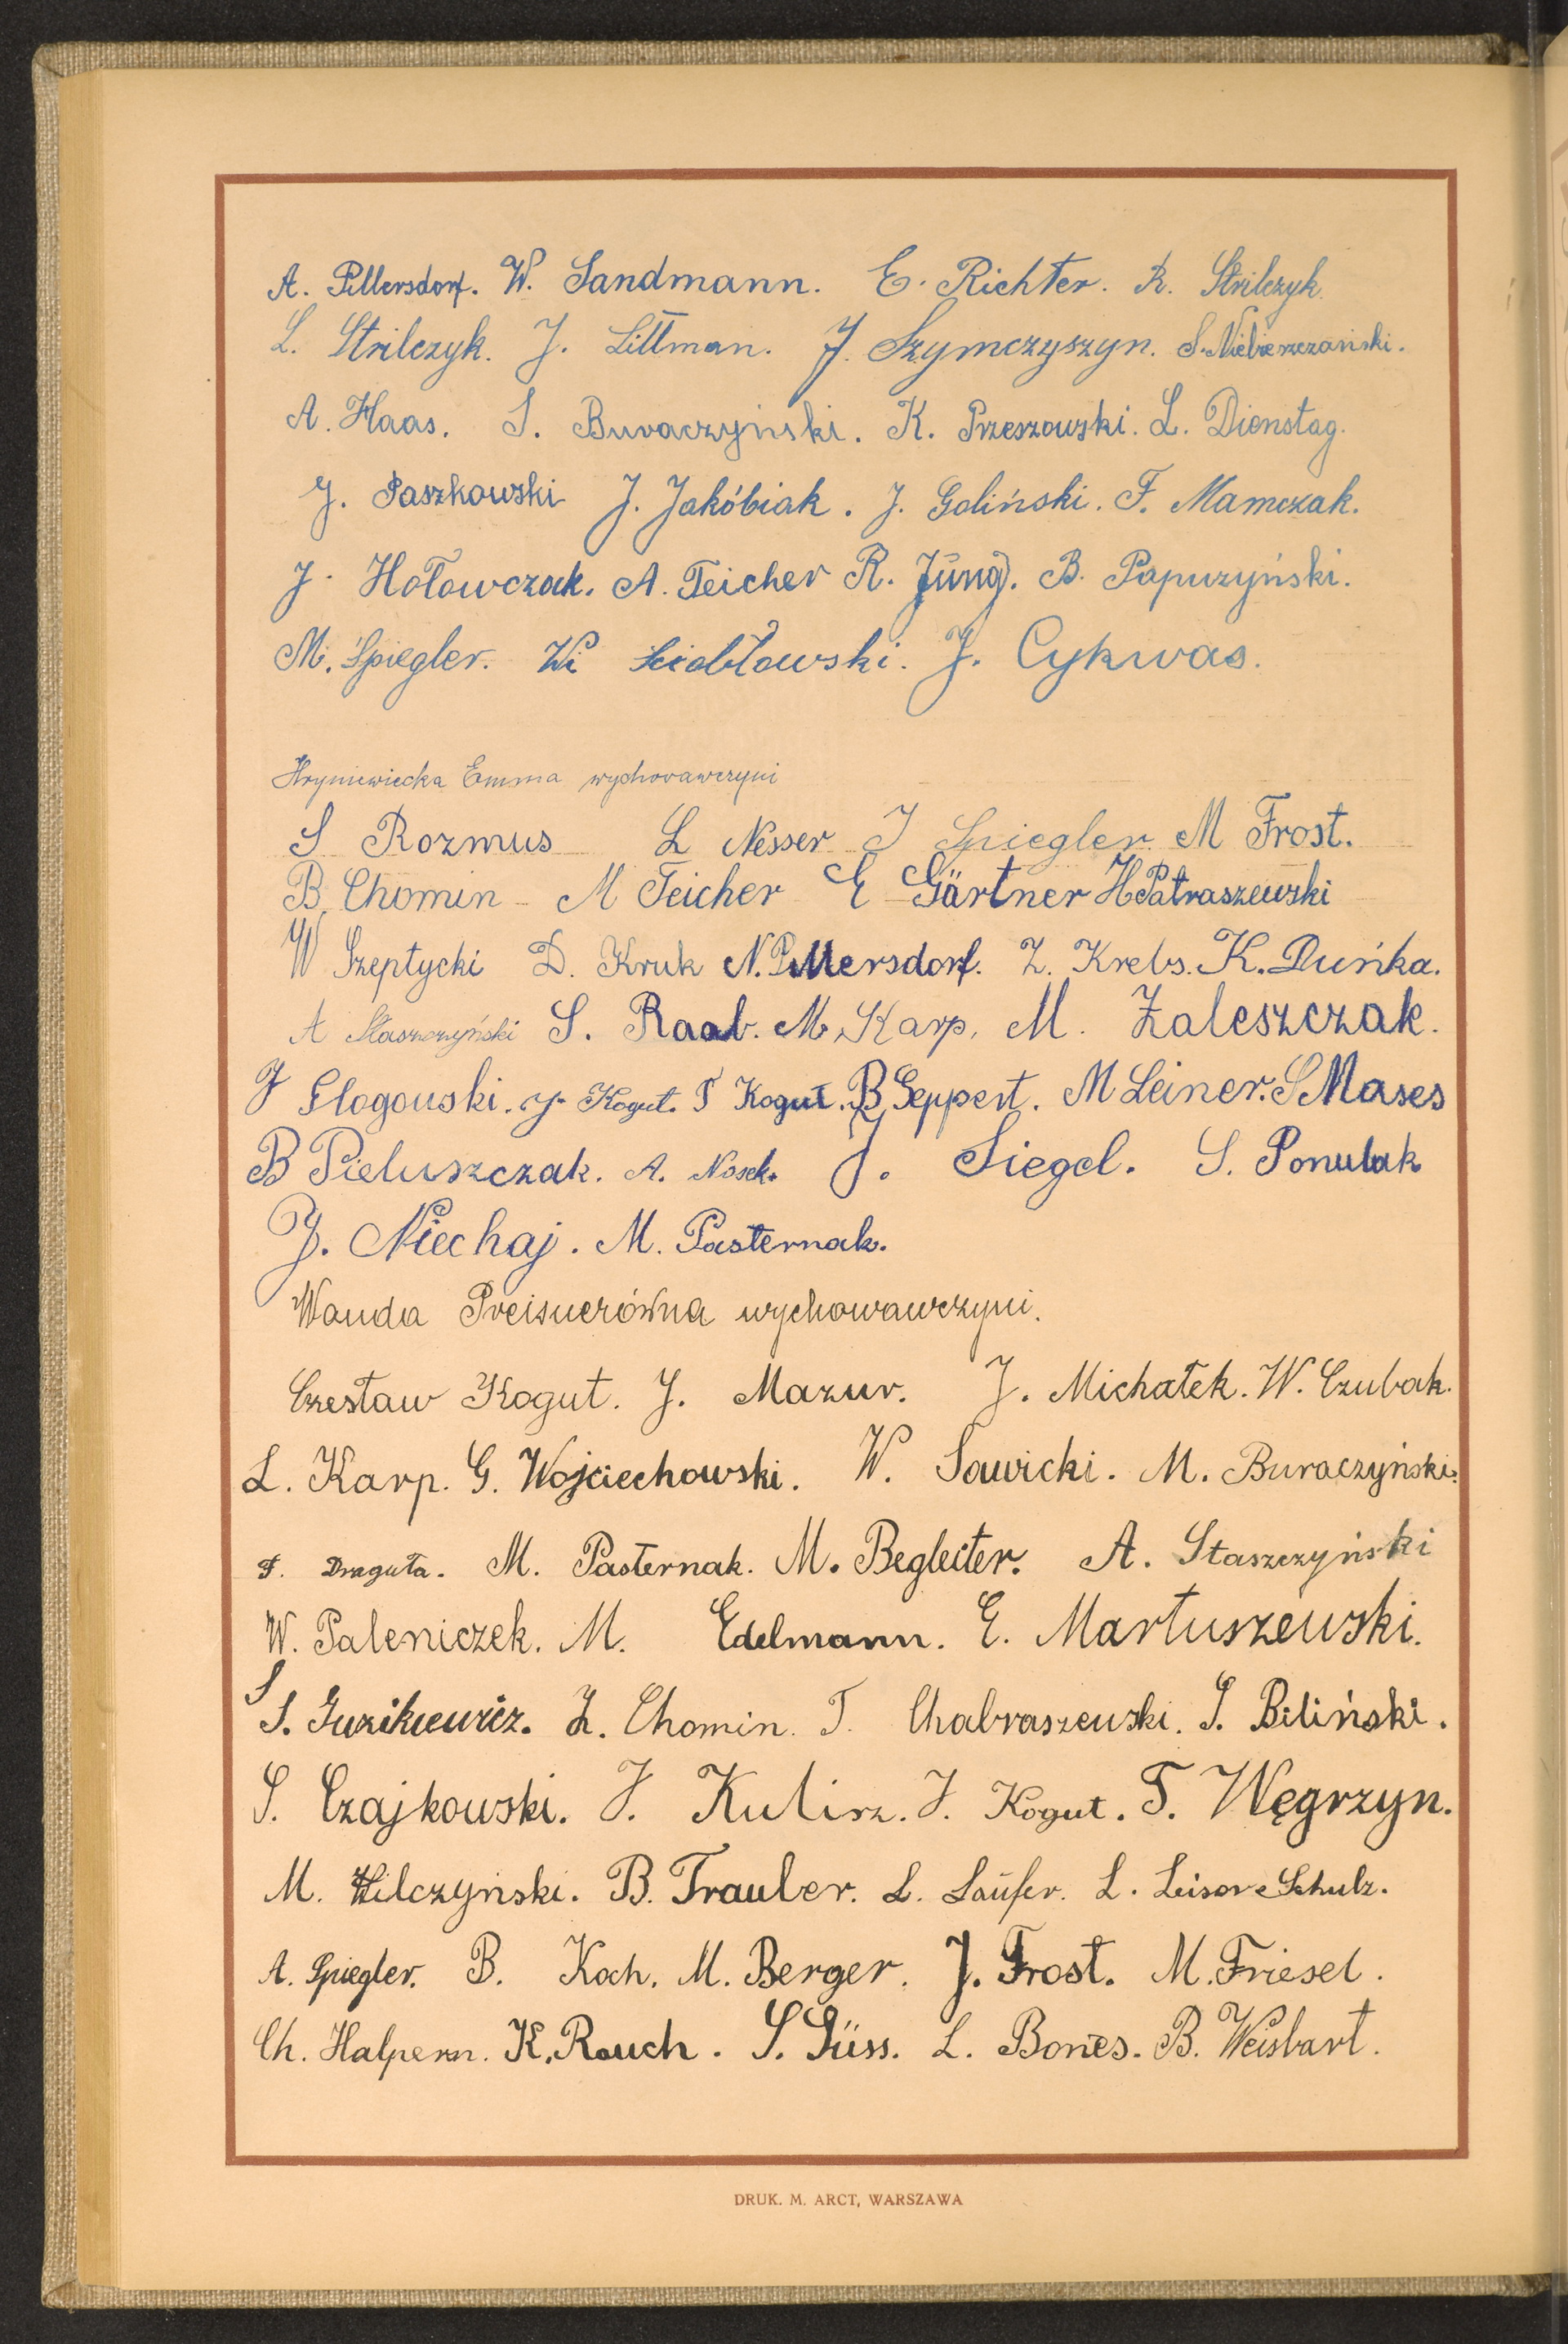 A. Pillersdorf. W. Sandmann. E. Richter. R. Strilczyk.
L. Strilczyk. J. Littman. J. Szymczyszyn. S. Niebieszczański.
A. Haas. S. Buraczyński. K. Przeszowski. L. Dienstag.
J. Paszkowski J. Jakóbiak. J. Goliński. F. Mamczak.
J. Hołowczak. A. Teicher R. Jung. B. Papuzyński.
M. Spiegler. J. Cykwas.
Hryniewiecka Emma wychowawczyni
S Rozmus L Nesser J Spiegler M Frost.
B. Chomin M Teicher E Gärtner H Patraszewski
W Szeptycki D. Kruk N. Pillersdorf. Z. Krebs. K. Duńka.
A Staszczyński S. Raab. M. Karp. M. Zaleszczak.
J Glogowski. J. Kogut. T Kogut. B Geppert. M Leiner. S Mases
B Pieluszczak. A. Nosek. J. Siegel. S. Ponulak
J. Niechaj. M. Pasternak.
Wanda Preisnerówna wychowawczyni.
Czesław Kogut. J. Mazur. J. Michałek. W. Czubak.
L. Karp. G. Wojciechowski. W. Sawicki. M. Buraczyński.
F. Draguła. M. Pasternak. M. Begleiter. A. Staszczyński
W. Paleniczek. M. Edelmann. E. Martuszewski.
S. Guzikiewicz. Z. Chomin. T. Chabraszewski. S. Biliński.
S. Czajkowski. J. Kulisz. J. Kogut. T. Węgrzyn.
M. Wilczyński. B. Trauber. L. Laufer. L. Leisor Schulz.
A. Spiegler. B. Koch. M. Berger. J. Frost. M. Friesel.
Ch. Halpern. K. Rauch. S. Süss. L. Bones. B. Weisbart.
DRUK. M. ARCT, WARSZAWA